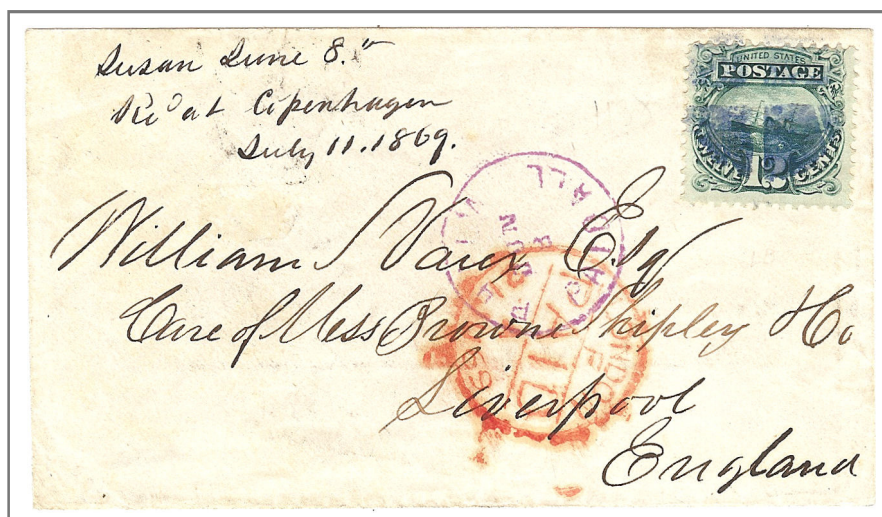 Susan June 8.th
Rec'd at Copenhagen
July 11. 1869.
UNITED STATES
POSTAGE
TWELVE 12 CENTS
William S Vaux Esq
Care of Mess Browne Shipley & Co
Liverpool
England
PAID ALL
PAID